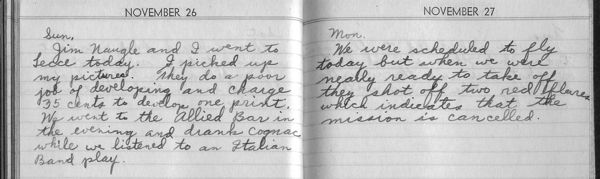 NOVEMBER 26
Sun.
Jim Naugle and I went to
Lecce today. I picked up
my pictures. They do a poor
job of developing and charge
35 cents to develop one print.
We went to the Allied Bar in
the evening and drank cognac
while we listened to an Italian
Band play.
NOVEMBER 27
Mon.
We were scheduled to fly
today but when we were
nearly ready to take off
they shot off two red flares
which indicates that the
mission is cancelled.